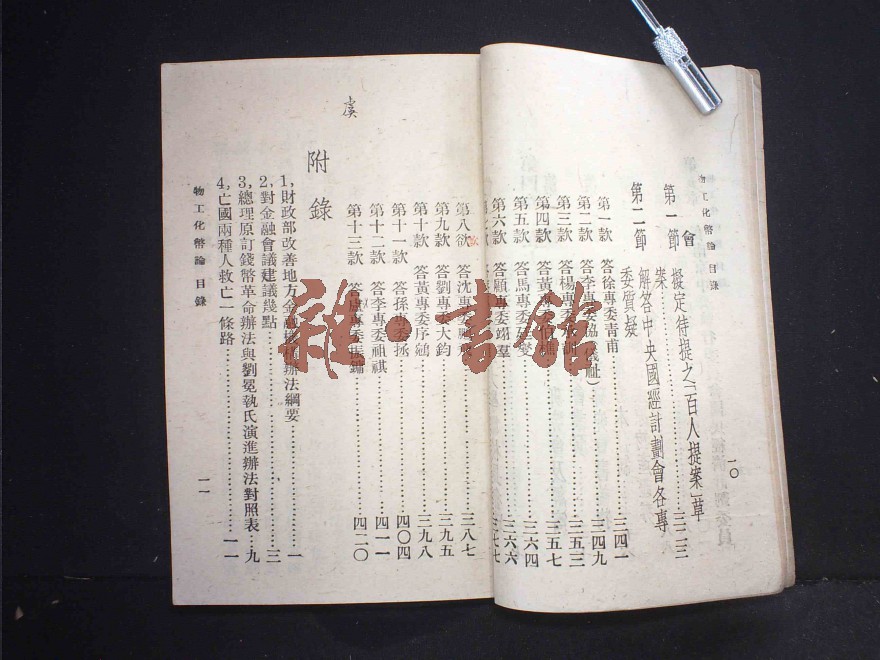 物工化幣論 目錄
一〇
會
第一節 擬定待提之「百人提案」草
案……三三三
第二節 解答中央國經計劃會各專
委質疑
第一款 答徐專委青甫……三四一
第二款 答李專委……三四九
第三款 答楊專委……三五三
第四款 答黃……三五七
第五款 答馬專委寅……三六四
第六款 答顧專委翊羣……三六六
三七七
第八欵 答沈專委……三八七
第九款 答劉專委大鈞……三九五
第十款 答黃專委序鵷……三九八
第十一款 答孫專委拯……四〇四
第十二款 答李專委祖祺……四一一
第十三款 答盧專委振鏞……四二〇
附錄
1,財政部改善地方金融機構辦法綱要……一
2,對金融會議建議幾點……三
3,總理原訂錢幣革命辦法與劉冕執氏演進辦法對照表…九
4,亡國兩種人救亡一條路……一一
物工化幣論 目錄
一一
虞
雜·書館